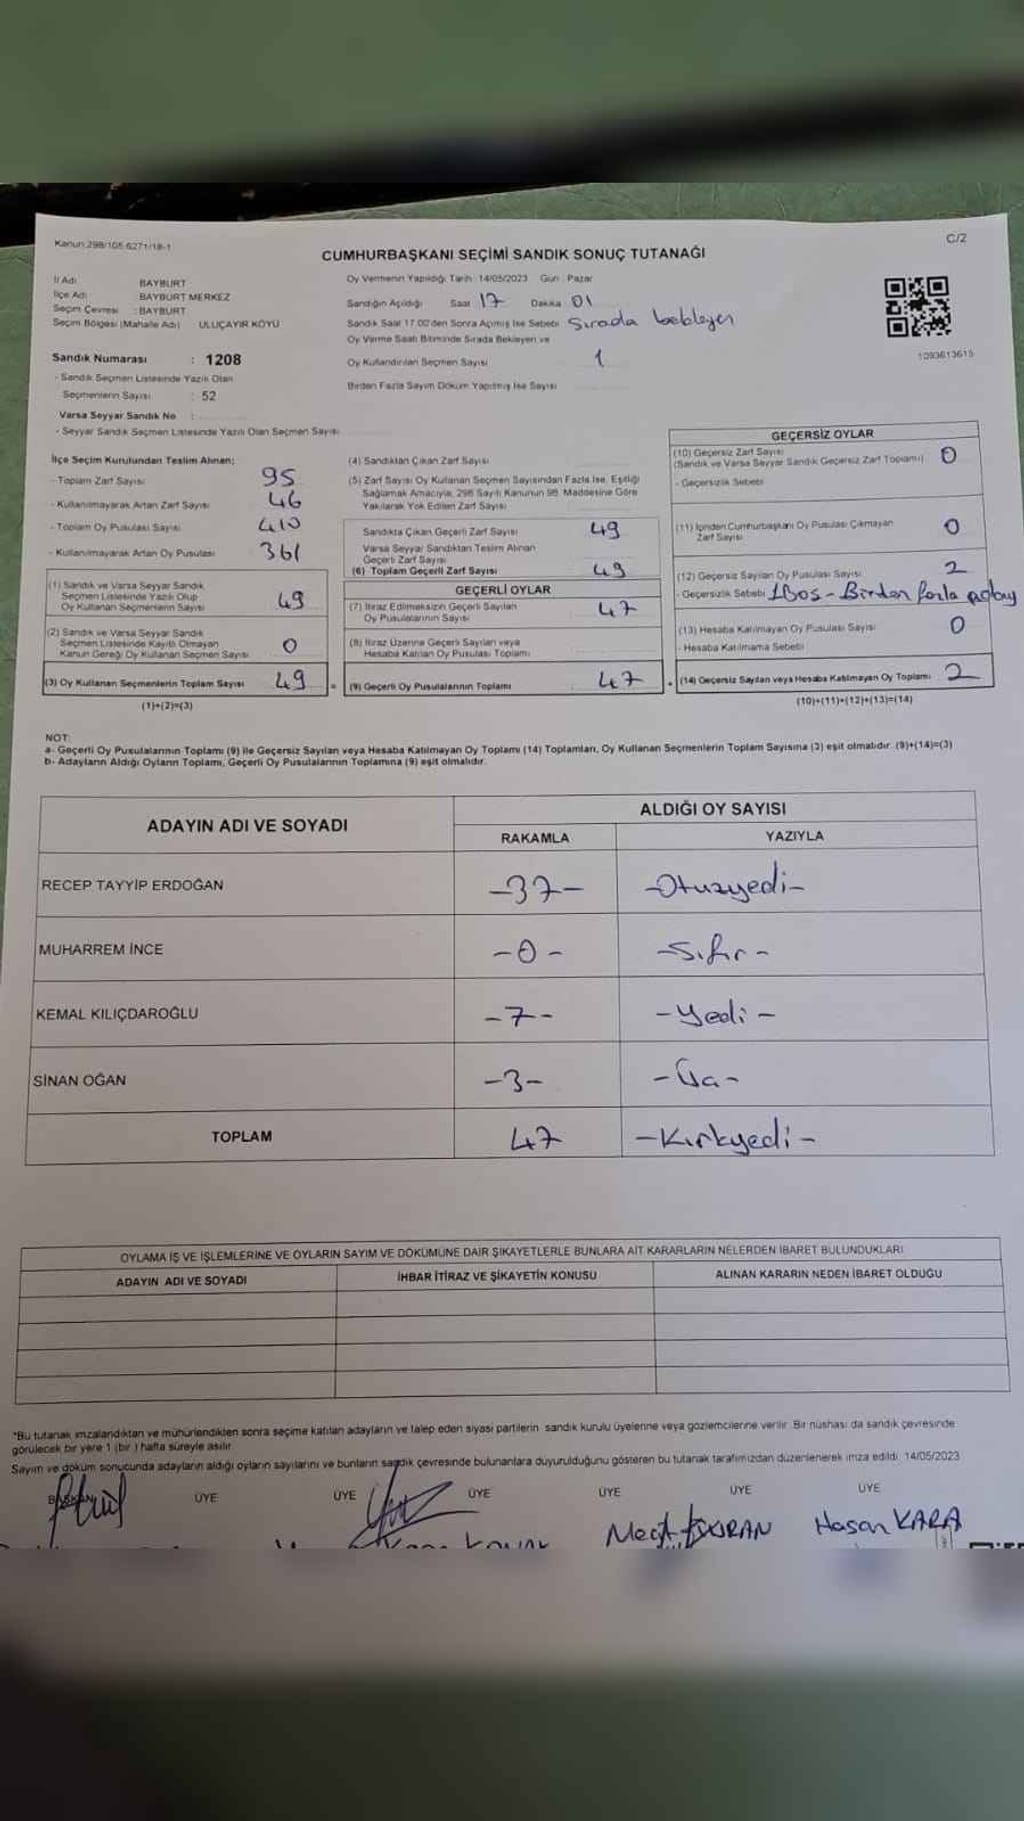 Kanun:298/105 6271/18-1
C/2
CUMHURBAŞKANI SEÇİMİ SANDIK SONUÇ TUTANAĞI
İl Adı BAYBURT
İlçe Adı BAYBURT MERKEZ
Seçim Çevresi : BAYBURT
Seçim Bölgesi (Mahalle Adı) ULUÇAYIR KÖYÜ
Sandık Numarası : 1208
- Sandık Seçmen Listesinde Yazılı Olan
Seçmenlerin Sayısı : 52
Varsa Seyyar Sandık No :
- Seyyar Sandık Seçmen Listesinde Yazılı Olan Seçmen Sayısı
Oy Vermenin Yapıldığı Tarih : 14/05/2023 Gün : Pazar
Sandığın Açıldığı Saat 17 Dakika 01
Sandık Saat 17:00'den Sonra Açılmış İse Sebebi Sırada bekleyen
Oy Verme Saati Bitiminde Sırada Bekleyen ve
Oy Kullandırılan Seçmen Sayısı 1
Birden Fazla Sayım Döküm Yapılmış İse Sayısı
1093613615
İlçe Seçim Kurulundan Teslim Alınan;
- Toplam Zarf Sayısı 95
- Kullanılmayarak Artan Zarf Sayısı 46
- Toplam Oy Pusulası Sayısı 410
- Kullanılmayarak Artan Oy Pusulası 361
(1) Sandık ve Varsa Seyyar Sandık
Seçmen Listesinde Yazılı Olup
Oy Kullanan Seçmenlerin Sayısı 49
(2) Sandık ve Varsa Seyyar Sandık
Seçmen Listesinde Kayıtlı Olmayan
Kanun Gereği Oy Kullanan Seçmen Sayısı 0
(3) Oy Kullanan Seçmenlerin Toplam Sayısı 49 =
(1)+(2)=(3)
(4) Sandıktan Çıkan Zarf Sayısı
(5) Zarf Sayısı Oy Kullanan Seçmen Sayısından Fazla İse, Eşitliği
Sağlamak Amacıyla, 298 Sayılı Kanunun 98. Maddesine Göre
Yakılarak Yok Edilen Zarf Sayısı
Sandıkta Çıkan Geçerli Zarf Sayısı 49
Varsa Seyyar Sandıktan Teslim Alınan
Geçerli Zarf Sayısı
(6) Toplam Geçerli Zarf Sayısı 49
GEÇERLİ OYLAR
(7) İtiraz Edilmeksizin Geçerli Sayılan
Oy Pusulalarının Sayısı 47
(8) İtiraz Üzerine Geçerli Sayılan veya
Hesaba Katılan Oy Pusulası Toplamı
(9) Geçerli Oy Pusulalarının Toplamı 47 +
GEÇERSİZ OYLAR
(10) Geçersiz Zarf Sayısı
(Sandık ve Varsa Seyyar Sandık Geçersiz Zarf Toplamı) 0
- Geçersizlik Sebebi
(11) İçinden Cumhurbaşkanı Oy Pusulası Çıkmayan
Zarf Sayısı 0
(12) Geçersiz Sayılan Oy Pusulası Sayısı 2
- Geçersizlik Sebebi 1Boş - Birden fazla aday
(13) Hesaba Katılmayan Oy Pusulası Sayısı 0
- Hesaba Katılmama Sebebi
(14) Geçersiz Sayılan veya Hesaba Katılmayan Oy Toplamı 2
(10)+(11)+(12)+(13)=(14)
NOT:
a- Geçerli Oy Pusulalarının Toplamı (9) ile Geçersiz Sayılan veya Hesaba Katılmayan Oy Toplamı (14) Toplamları, Oy Kullanan Seçmenlerin Toplam Sayısına (3) eşit olmalıdır. (9)+(14)=(3)
b- Adayların Aldığı Oyların Toplamı, Geçerli Oy Pusulalarının Toplamına (9) eşit olmalıdır.
ADAYIN ADI VE SOYADI
ALDIĞI OY SAYISI
RAKAMLA YAZIYLA
RECEP TAYYİP ERDOĞAN -37- -Otuzyedi-
MUHARREM İNCE -0- -Sıfır-
KEMAL KILIÇDAROĞLU -7- -Yedi-
SİNAN OĞAN -3- -Üç-
TOPLAM 47 -Kırkyedi-
OYLAMA İŞ VE İŞLEMLERİNE VE OYLARIN SAYIM VE DÖKÜMÜNE DAİR ŞİKAYETLERLE BUNLARA AİT KARARLARIN NELERDEN İBARET BULUNDUKLARI
ADAYIN ADI VE SOYADI İHBAR İTİRAZ VE ŞİKAYETİN KONUSU ALINAN KARARIN NEDEN İBARET OLDUĞU
*Bu tutanak imzalandıktan ve mühürlendikten sonra seçime katılan adayların ve talep eden siyasi partilerin sandık kurulu üyelerine veya gözlemcilerine verilir. Bir nüshası da sandık çevresinde
görülecek bir yere 1 (bir ) hafta süreyle asılır.
Sayım ve döküm sonucunda adayların aldığı oyların sayılarını ve bunların sandık çevresinde bulunanlara duyurulduğunu gösteren bu tutanak tarafımızdan düzenlenerek imza edildi. 14/05/2023
BAŞKAN ÜYE ÜYE ÜYE ÜYE ÜYE ÜYE
Hasan KARA